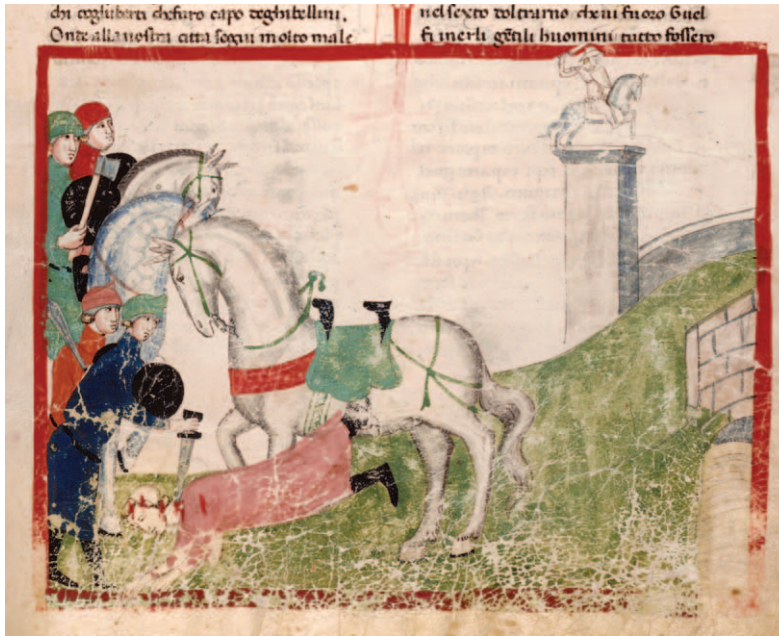 chi cogliuberti chefuro capo deghibellini.
Onde alla nostra citta segui molto male
nel sexto doltrarno che iui fuoro Guel
fi inerli gētili huomini tucto fossero